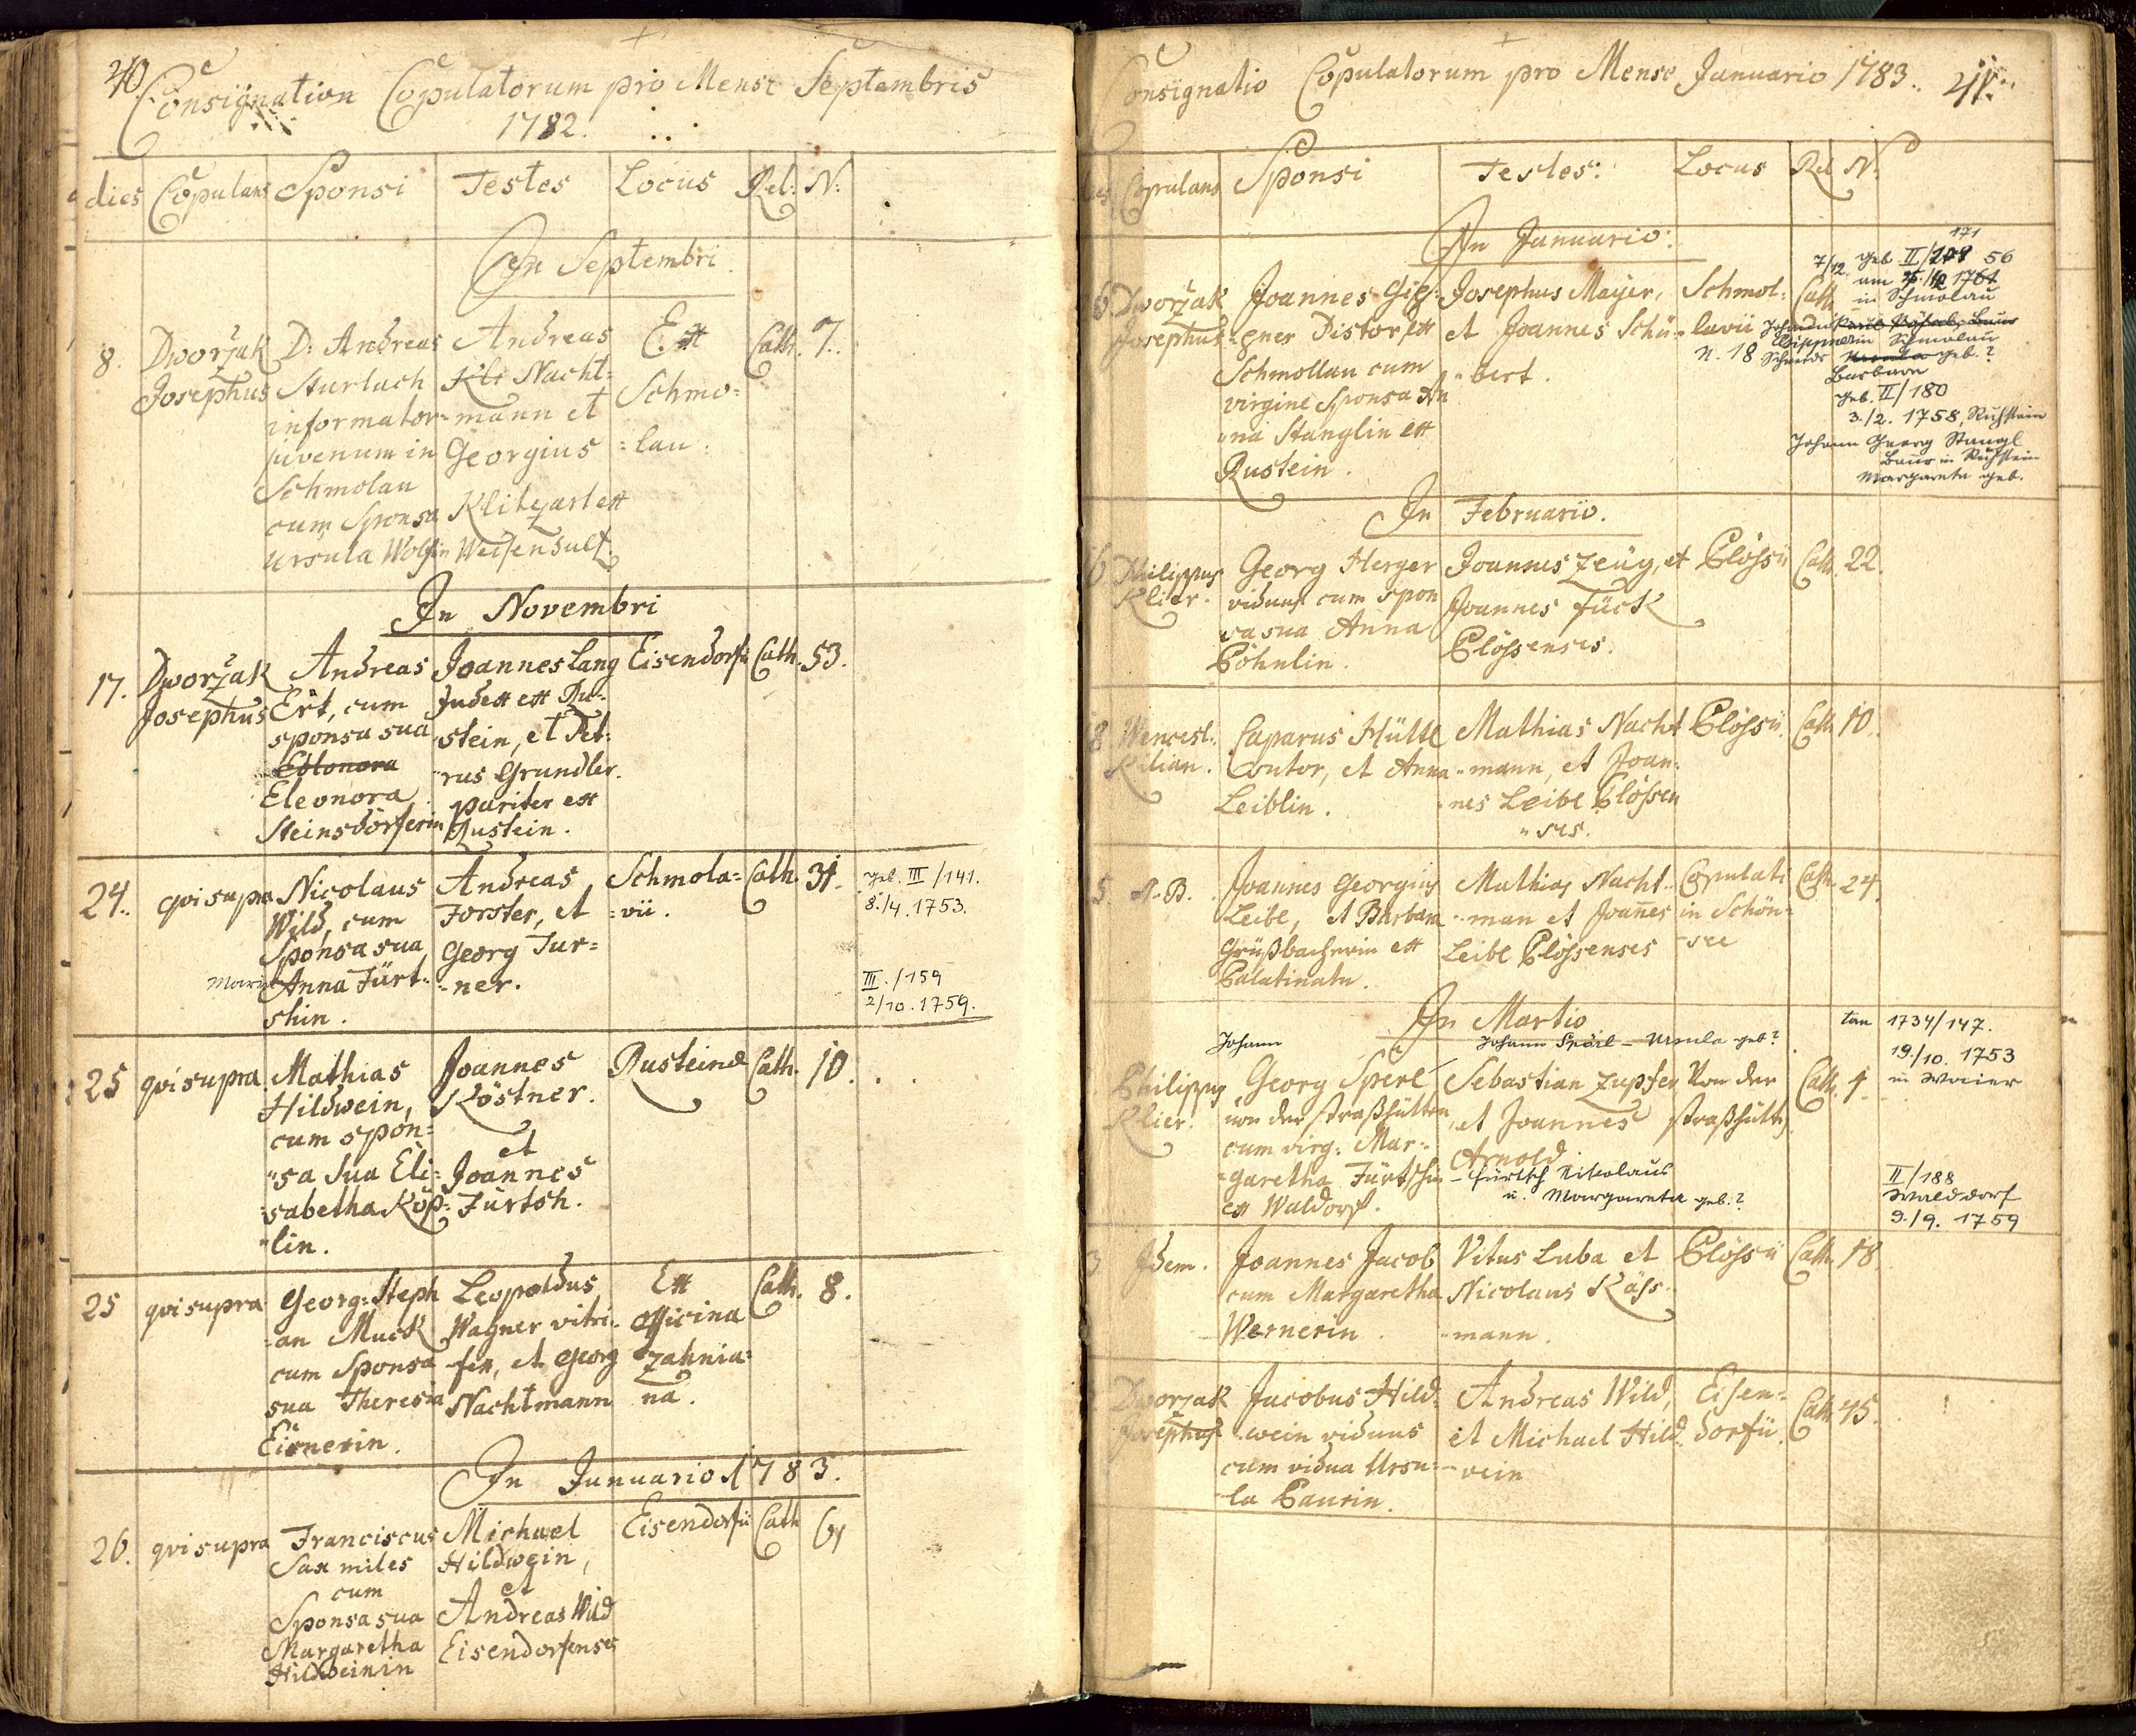 40.
Consignation Copulatorum pro Mense Septembris
1782.
dies Copulans Sponsi Testes Locus Rel: N:
In Septembri.
8. Dworzak Josephus
D: Andreas
Sturlach
informator
juvenum in
Schmolau
cum Sponsa
Ursula Wolfin
Andreas
Nacht=
=mann et
Georgius
Klitzart ex
Weisensult.
Ex
Schmo=
=lau.
Cath. 7.
In Novembri
17. Dworzak Josephus
Andreas
Ert, cum
sponsa sua
Eleonora
Steinsdörferin
Joannes Lang
Judex ex Ru=
stein, et Pet:
rus Grundler.
pariter ex
Rustein.
Eisendorfii Cath. 53.
24. qvi supra
Nicolaus
Wild, cum
Sponsa sua
Maria Anna Fürt=
shin.
Andreas
Forster, et
Georg Fur=
=ner.
Schmola=
=vii.
Cath. 31.
geb. III/141.
8./4. 1753.
III./159
2/10. 1759.
25 qvi supra
Mathias
Hildwein,
cum spon=
"sa sua Eli=
=sabetha Köß=
"lin.
Joannes
Köstner.
et
Joannes
Fürtsh.
Rusteinæ Cath. 10.
25 qvi supra
Georg: Steph
=an Muck
cum Sponsa
sua Theresia
Eisnerin.
Leopoldus
Wagner vitri=
=fex, et Georg
Nachtmann
Ex
officina
Zahnia=
na.
Cath. 8.
In Januario 1783.
26. qvi supra
Franciscus
Sax miles
cum
Sponsa sua
Margaretha
Hildweinin
Michael
Hildwein,
et
Andreas Wild
Eisendorfenses
Eisendorfii Cath 61
Consignatio Copulatorum pro Mense Januario 1783. 41.
Copulans Sponsi Testes: Locus Rel N:
In Januario:
6 Dworzak Josephus
Joannes Gig=
=gner Distor ex
Schmollau cum
virgine Sponsa An
"na Stanglin ex
Rustein.
Josephus Mayer,
et Joannes Schu=
"bert.
Schmol=
lavii
n. 18
Cath.
171
7/12 geb. II/ 56
am 1761
in Schmolau
Schmolau
geb.?
Barbara
geb. II/180
3./2. 1758, Ruhstein
Johann Georg Stangl
Bauer in Ruhstein
Margareta geb.
In Februario.
6 Philippus Klier.
Georg Herger
viduus cum spon
sa sua Anna
Böhnlin.
Joannes Zeug, et
Joannes Fück
Plössenses.
Plössii Cath. 22.
8 Wencesl. Kilian.
Casparus Hüttl
Contor, et Anna
Leiblin.
Mathias Nacht
"mann, et Joan=
nes Leibl Plössen
"ses.
Plössii. Cath. 10.
5. A. B.
Joannes Georgius
Leibl, et Barbara
Grüßbacherin ex
Palatinatu.
Mathias Nacht=
"man et Joañes
Leibl Plössenses
Copulati
in Schön=
see
Cath. 24.
In Martio
Johann
Johann Spörl – Ursula geb?
Philippus Klier.
Georg Sperl
von der straßhütten
cum virg: Mar=
=garetha Fürtshin
ex Waldorf.
Sebastian Zupfer
et Joannes
Arnold
– Fürtsch Nikolaus
u. Margareta geb.?
Von der
straßhütte
Cath. 1.
tau 1734/147.
19./10. 1753
in Waier
II/188
Walddorf
9./9. 1759
3 Idem.
Joannes Jacob
cum Margaretha
Wernerin.
Vitus Luba et
Nicolaus Käss=
"mann.
Plössii Cath. 18.
Dworzak Josephus
Jacobus Hild=
wein viduus
cum vidua Ursu=
la Paurin.
Andreas Wild,
et Michael Hild=
wein
Eisen=
dorfii.
Cath. 45.